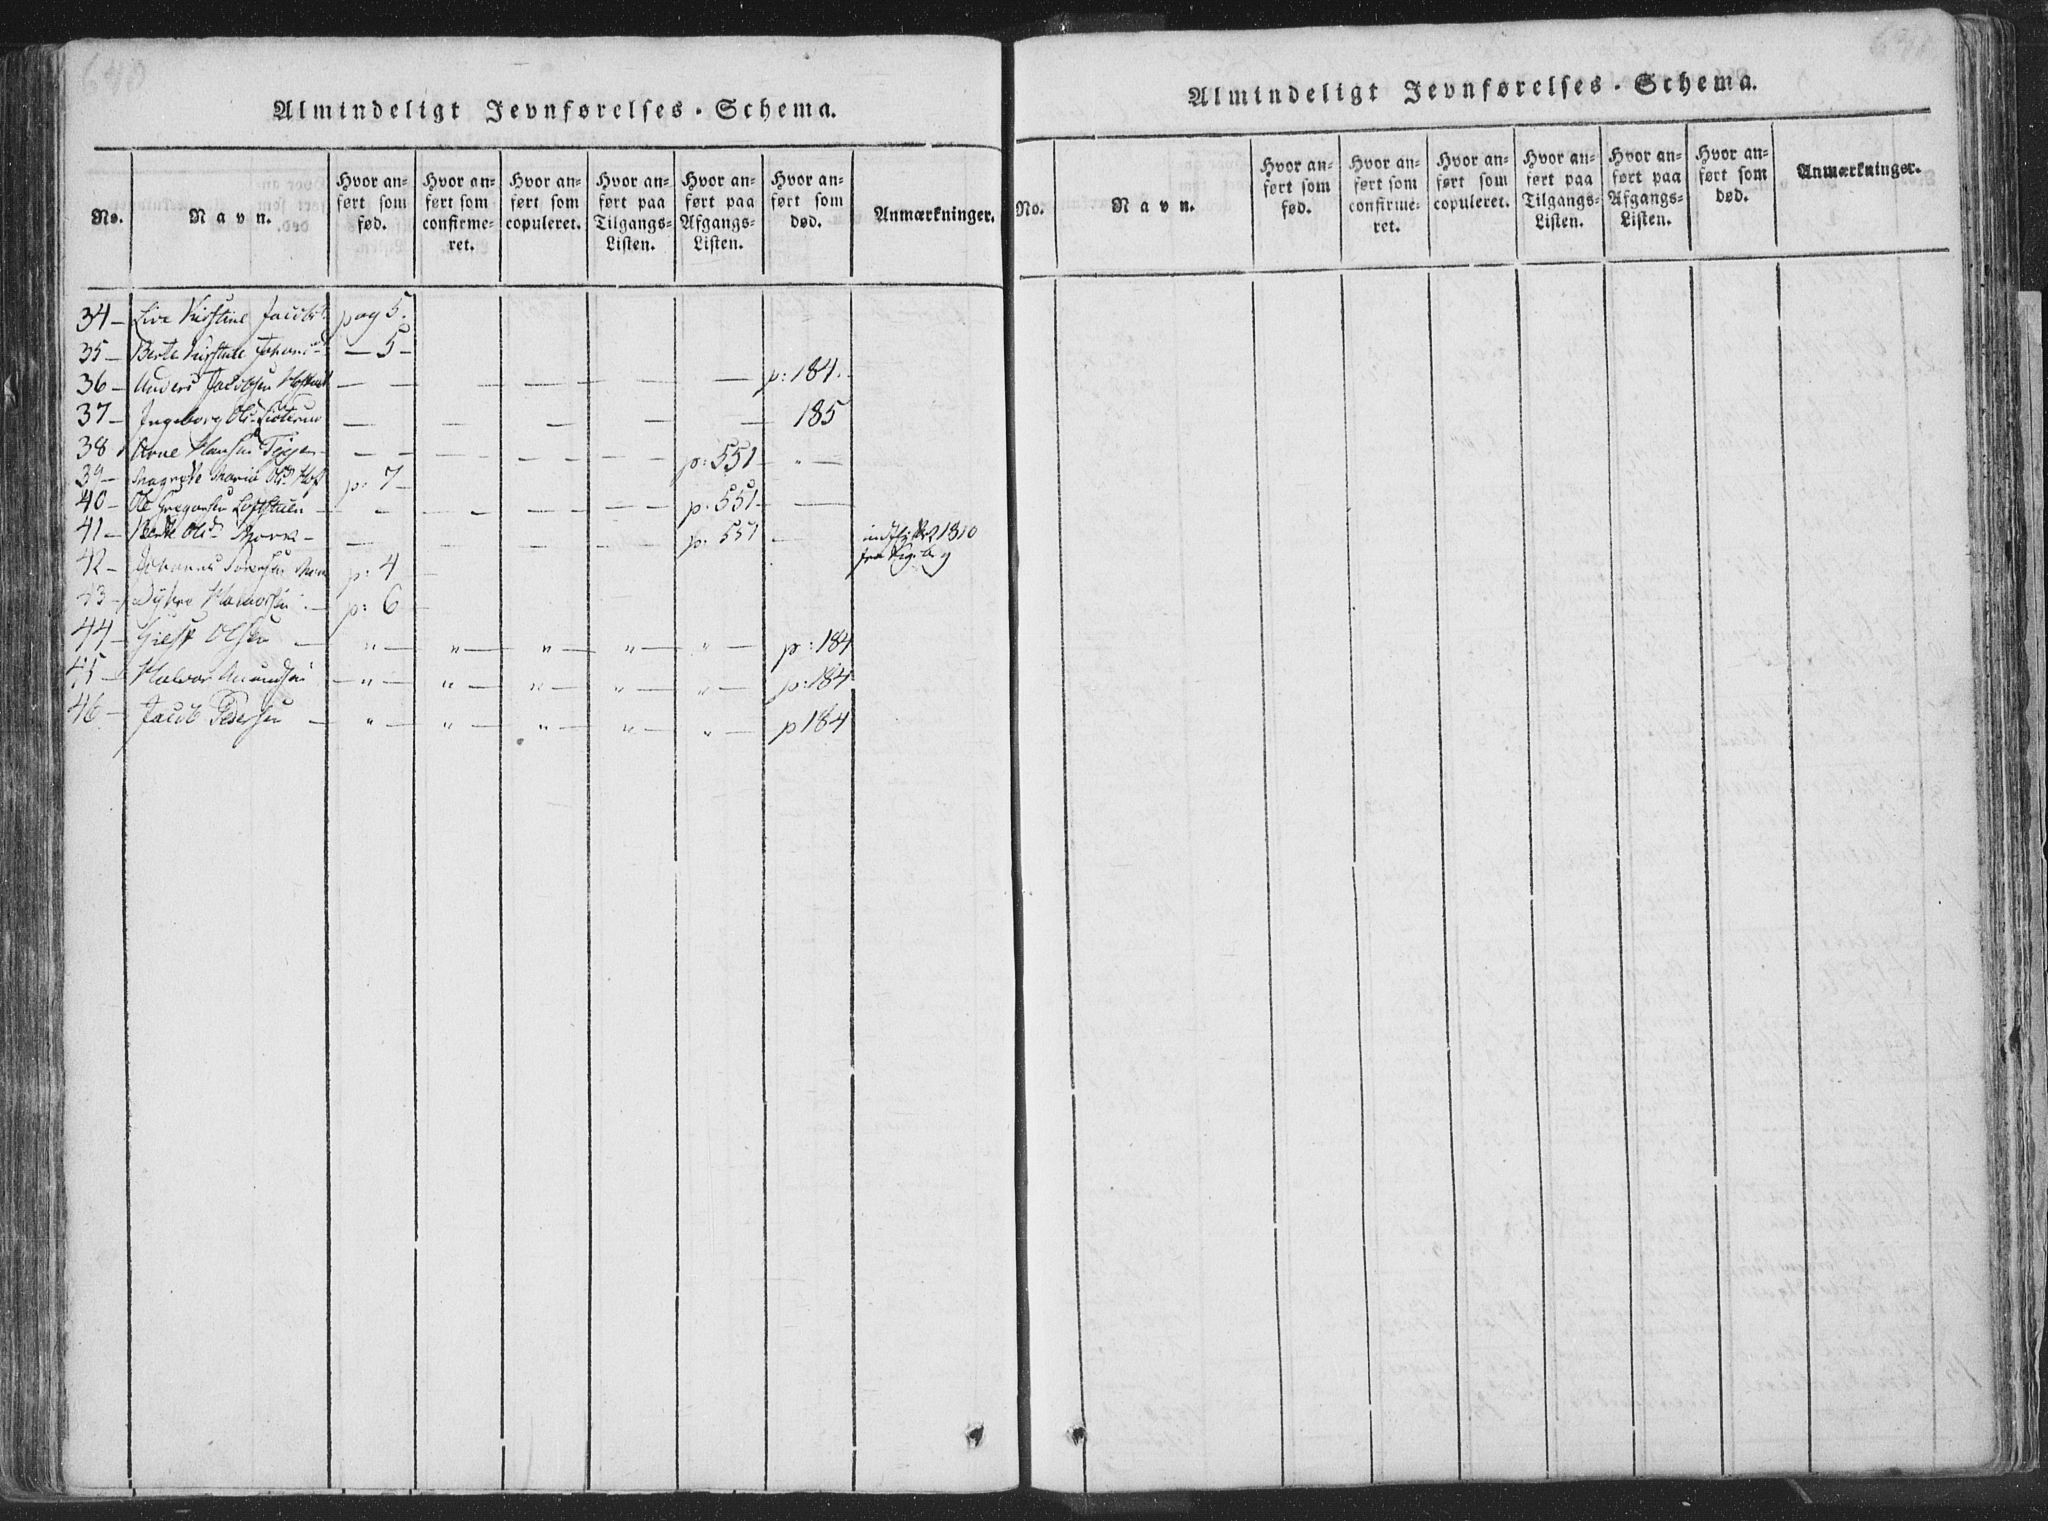 640
Almindeligt Jevnførelses-Schema.
No.
Navn.
Hvor an-
ført som
fød.
Hvor an-
ført som
confirme-
ret.
Hvor an-
ført som
copuleret.
Hvor an-
ført paa
Tilgangs-
Listen.
Hvor an-
ført paa
Afgangs-
Listen.
Hvor an-
ført som
død.
Anmærkninger.
34 - Live Kirstine Jacobsd. pag 5.
35 - Berte Kirstine Johansd. - 5 -
36 - Anders Jacobsen — — — — — — p: 184.
37 - Ingeborg Olsd. — — — — — 185
38 Arne Hansen — — — — — p: 551 - " -
39 - Magrete Maria Olsd. p: 7 -
40 - Ole Gregersen — — — — — p: 551 - —
41 - Berte Olsd. — — — — — p: 551 — 1810
fra
42 - Johannes p: 4 -
43 - Halvorsen - p: 6 -
44 - Olsen — " — " — " — " — " — p: 184
45 - Halvor Amundsen — " — " — " — " — " — p: 184
46 - Jacob Pedersen — " — " — " — " — " — p 184
641
Almindeligt Jevnførelses-Schema.
No.
Navn.
Hvor an-
ført som
fød.
Hvor an-
ført som
confirme-
ret.
Hvor an-
ført som
copuleret.
Hvor an-
ført paa
Tilgangs-
Listen.
Hvor an-
ført paa
Afgangs-
Listen.
Hvor an-
ført som
død.
Anmærkninger.